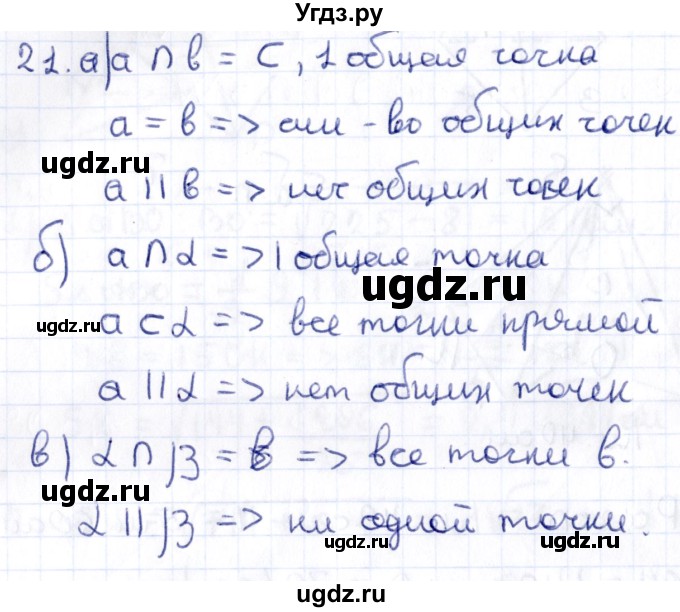 Угдз.ру
21. а) a ∩ b = C, 1 общая точка
a = b => мн-во общих точек
a || b => нет общих точек
ugdz.ru
б) a ∩ α => 1 общая точка
ugdz.ru
ugdz.ru a ⊂ α => все точки прямой
a || α => нет общих точек
в) α ∩ β = b => все точки b.
ugdz.ru
α || β => ни одной точки.
ugdz.ru ugdz.ru
ugdz.ru